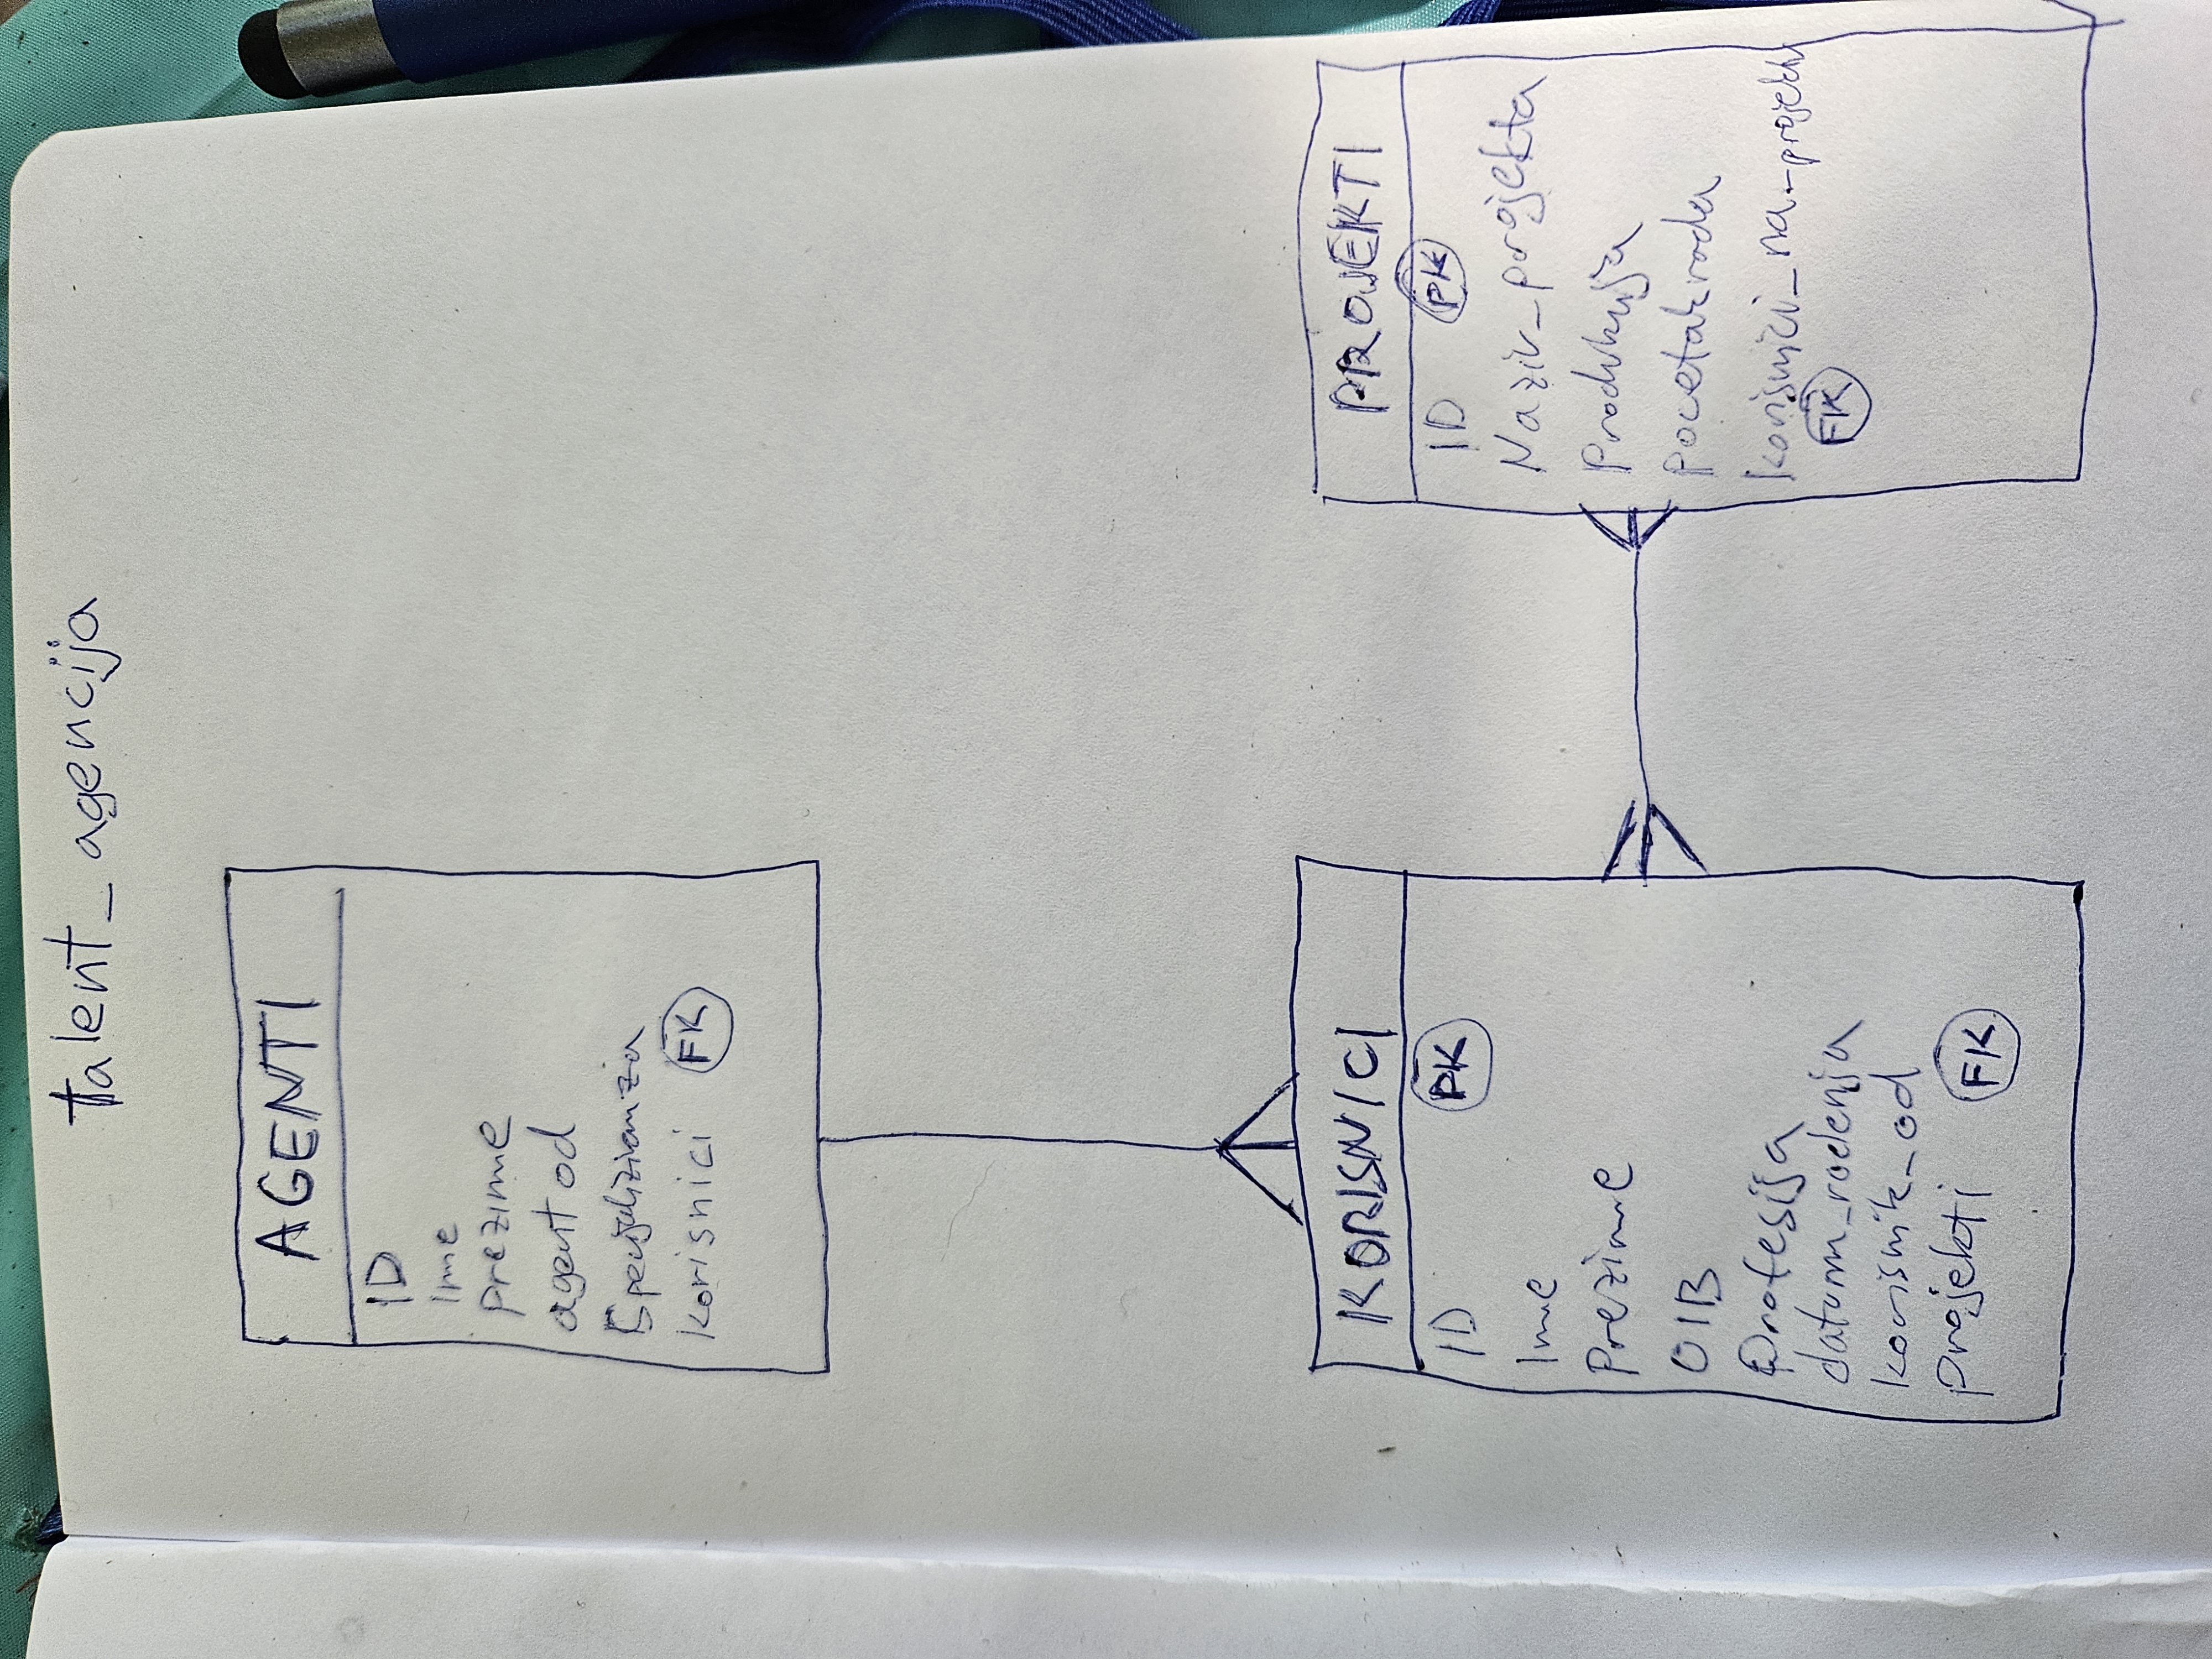 talent_agencija
AGENTI
ID
Ime
prezime
agent od
Specijalizian za
korisnici FK
KORISNICI
ID PK
Ime
Prezime
OIB
Profesija
datum_rođenja
korisnik_od
projekti FK
PROJEKTI
ID PK
Naziv_projekta
Produkcija
Pocetak rada
korisnici_na_projektu
FK